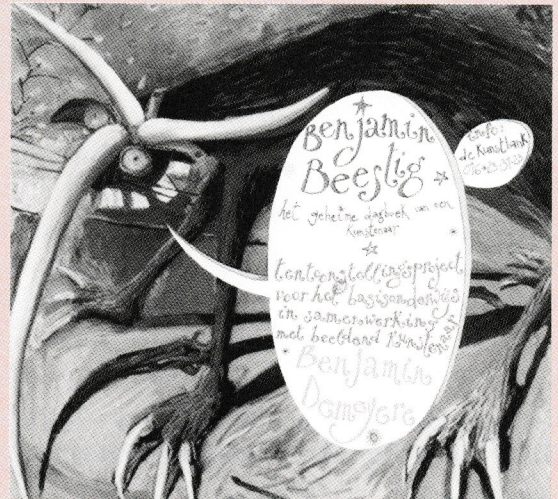 Benjamin
Beestig
het geheime dagboek van een
kunstenaar
tentoonstellingsproject
voor het basisonderwijs
in samenwerking
met beeldend kunstenaar
Benjamin
Demeyere
info:
de Kunstbank